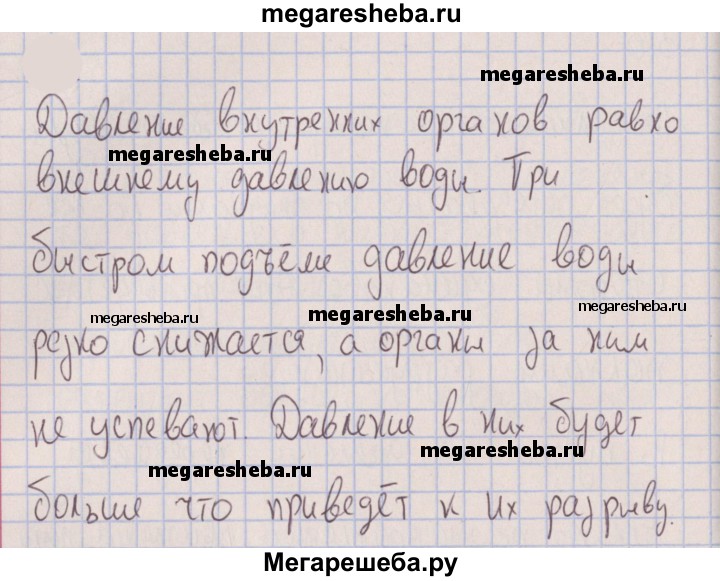 megaresheba.ru
megaresheba.ru
Давление внутренних органов равно
megaresheba.ru
внешнему давлению воды. При
быстром подъёме давление воды
megaresheba.ru
megaresheba.ru
megaresheba.ru
резко снижается, а органы за ним
не успевают. Давление в них будет
megaresheba.ru
megaresheba.ru
больше что приведёт к их разрыву.
Мегарешеба.ру